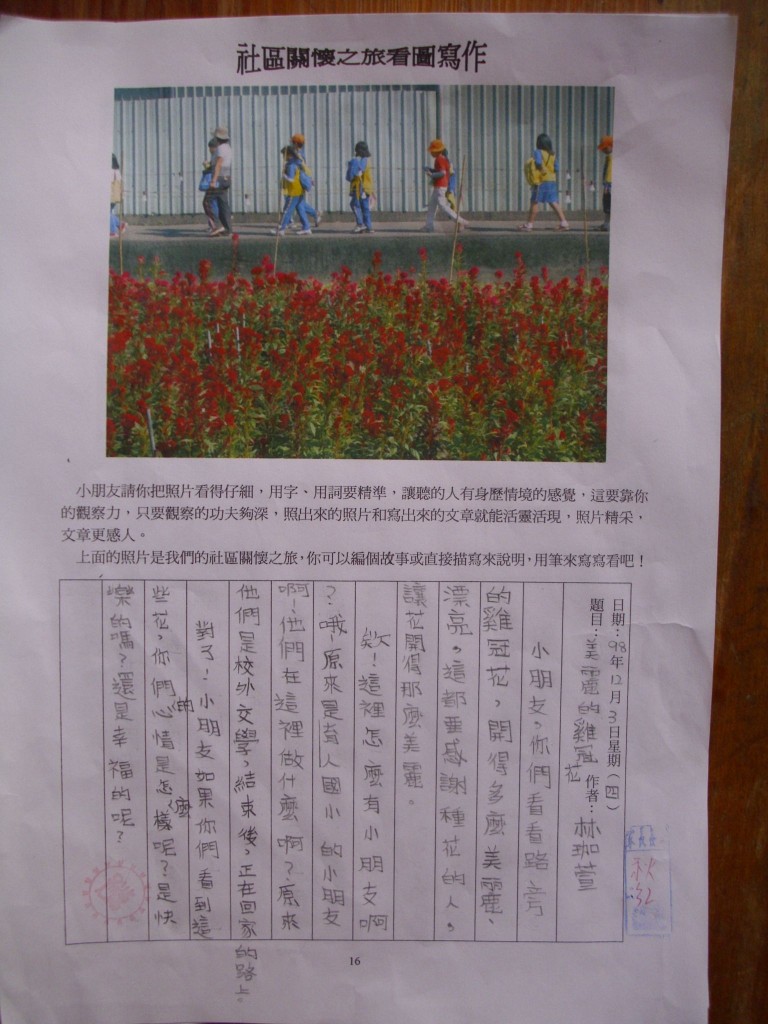 社區關懷之旅看圖寫作
小朋友請你把照片看得仔細，用字、用詞要精準，讓聽的人有身歷情境的感覺，這要靠你
的觀察力，只要觀察的功夫夠深，照出來的照片和寫出來的文章就能活靈活現，照片精采，
文章更感人。
上面的照片是我們的社區關懷之旅，你可以編個故事或直接描寫來說明，用筆來寫寫看吧！
日期：98年12月3日星期（四）
題目：美麗的雞冠花 作者：林珈萱
小朋友，你們看看路旁
的雞冠花，開得多麼美麗、
漂亮。這都要感謝種花的人，
讓花開得那麼美麗。
欸！這裡怎麼有小朋友啊
？哦！原來是 人國小的小朋友
啊！他們在這裡做什麼啊？原來
他們是校外交學，結束後，正在回家的路上。
對了！小朋友如果你們看到這
些花，你們的心情是怎麼樣呢？是快
樂的嗎？還是幸福的呢？
16